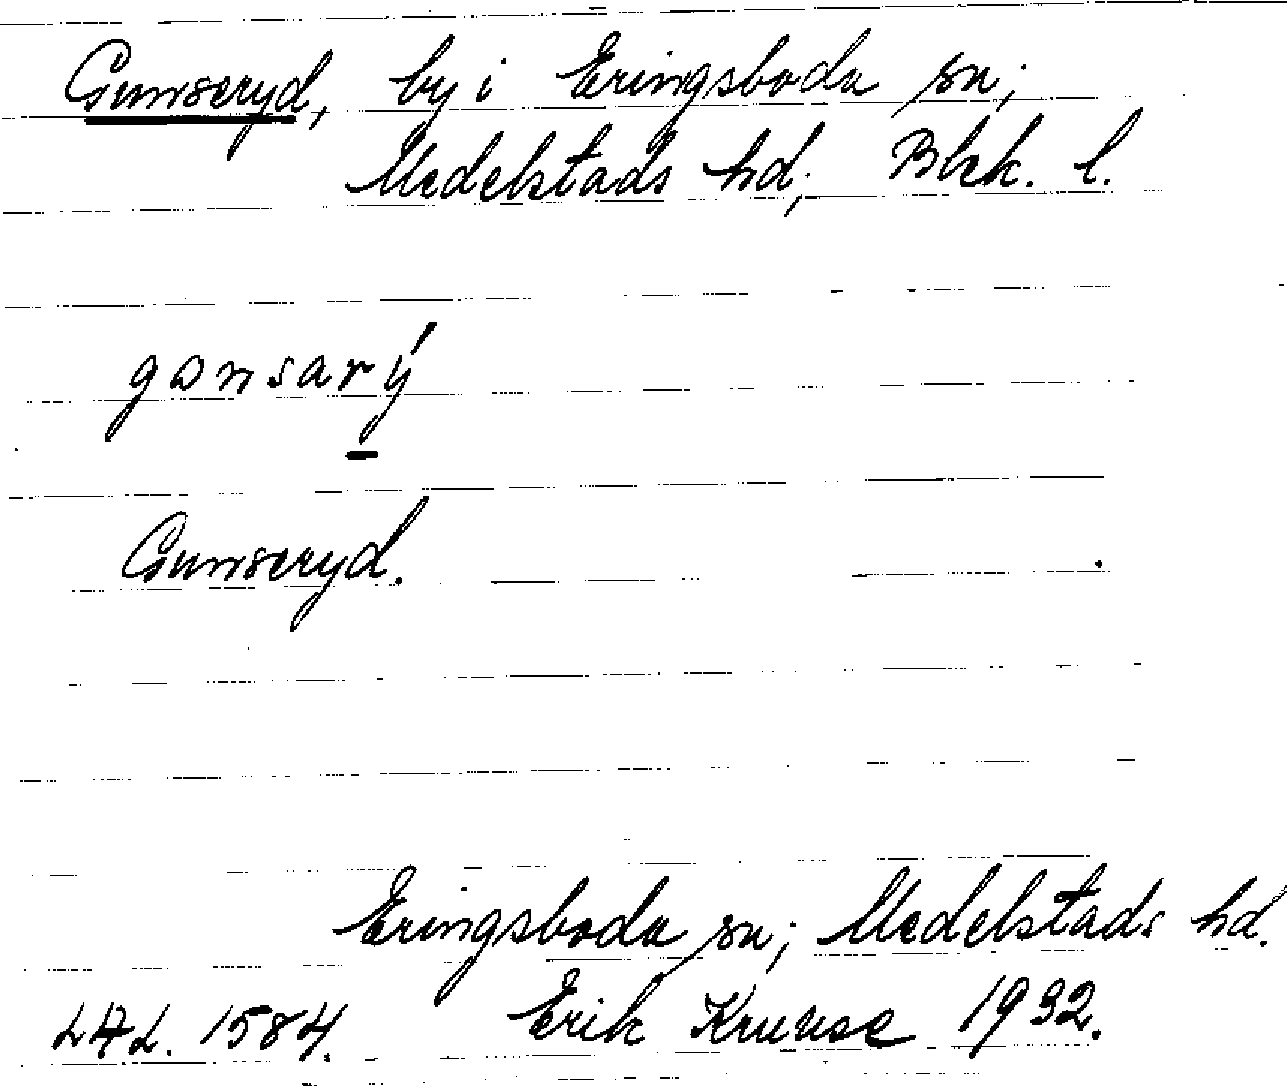 Gunseryd, by i Eringsboda sn;
Medelstads hd; Blek. l.
gɷnsarý
Gunseryd.
Eringsboda sn; Medelstads hd.
LAL. 1584. Erik Kruuse 1932.